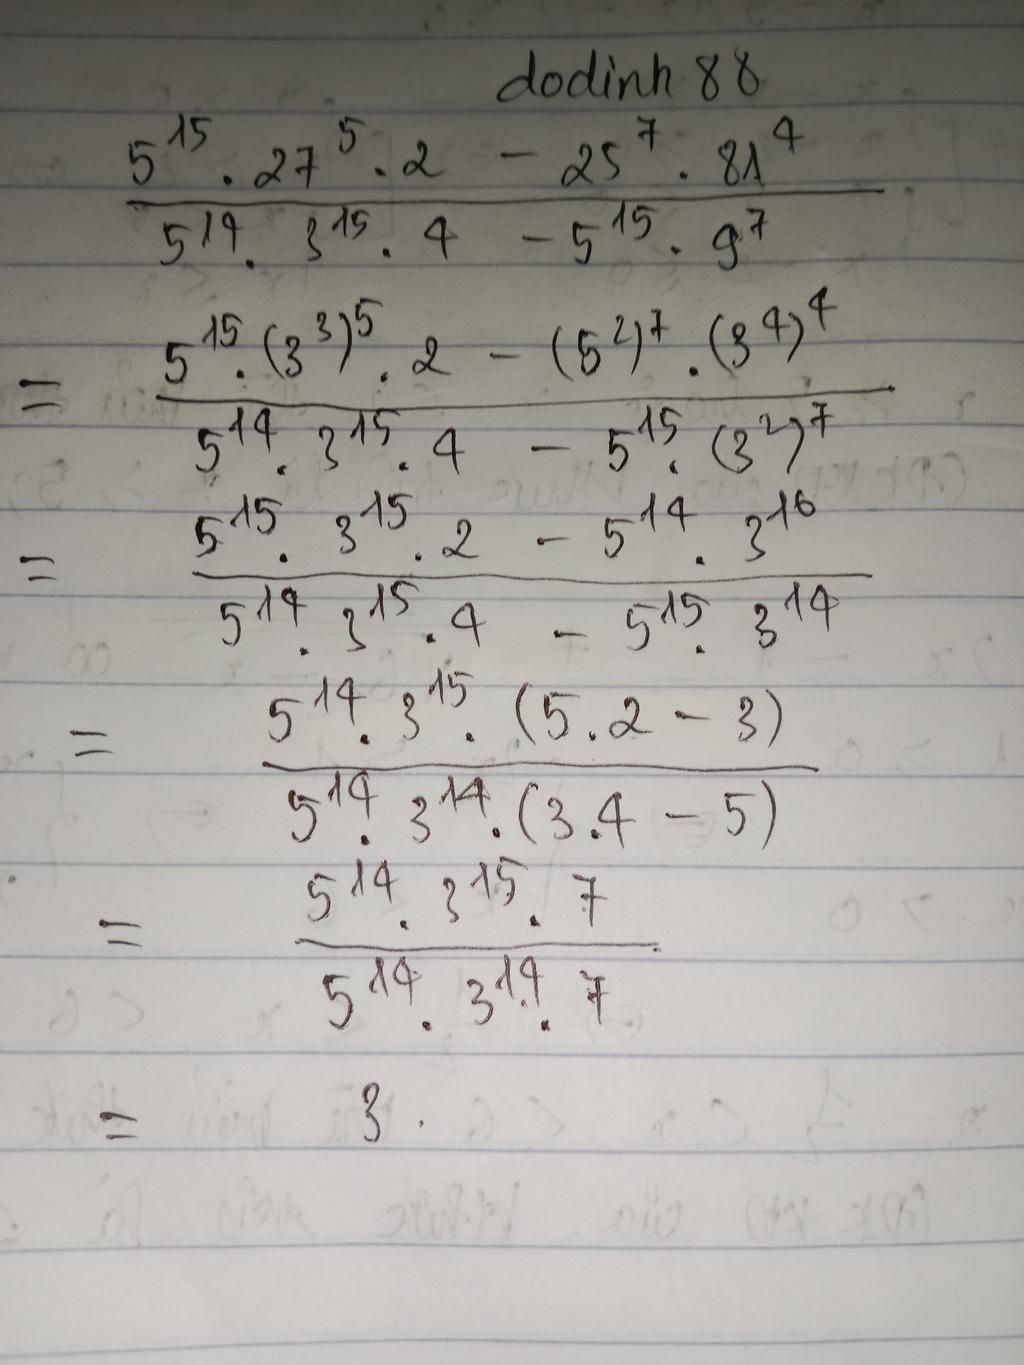 dodinh 88
5^15 . 27^5 . 2 - 25^7 . 81^4
5^14 . 3^15 . 4 - 5^15 . 9^7
= 5^15 . (3^3)^5 . 2 - (5^2)^7 . (3^4)^4
5^14 . 3^15 . 4 - 5^15 . (3^2)^7
= 5^15 . 3^15 . 2 - 5^14 . 3^16
5^14 . 3^15 . 4 - 5^15 . 3^14
= 5^14 . 3^15 . (5.2 - 3)
5^14 . 3^14 . (3.4 - 5)
= 5^14 . 3^15 . 7
5^14 . 3^14 . 7
= 3 .